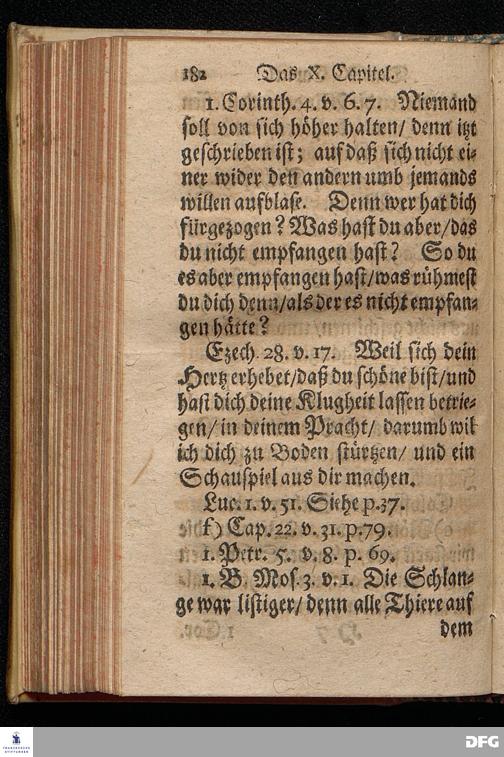 182 Das X. Capitel.
1. Corinth. 4. v. 6. 7. Niemand
soll von sich höher halten/ denn itzt
geschrieben ist; auf daß sich nicht ei-
ner wider den andern umb jemands
willen aufblase. Denn wer hat dich
fürgezogen? Was hast du aber/das
du nicht empfangen hast? So du
es aber empfangen hast/was rühmest
du dich denn/als der es nicht empfan-
gen hätte?
Ezech. 28. v. 17. Weil sich dein
Hertz erhebet/daß du schöne bist/und
hast dich deine Klugheit lassen betrie-
gen/ in deinem Pracht/ darumb wil
ich dich zu Boden stürtzen/ und ein
Schauspiel aus dir machen.
Luc. 1. v. 51. Siehe p. 37.
f) Cap. 22. v. 31. p. 79.
1. Petr. 5. v. 8. p. 69.
1. B. Mos. 3. v. 1. Die Schlan-
ge war listiger/ denn alle Thiere auf
dem
FRANCKESCHE STIFTUNGEN
DFG